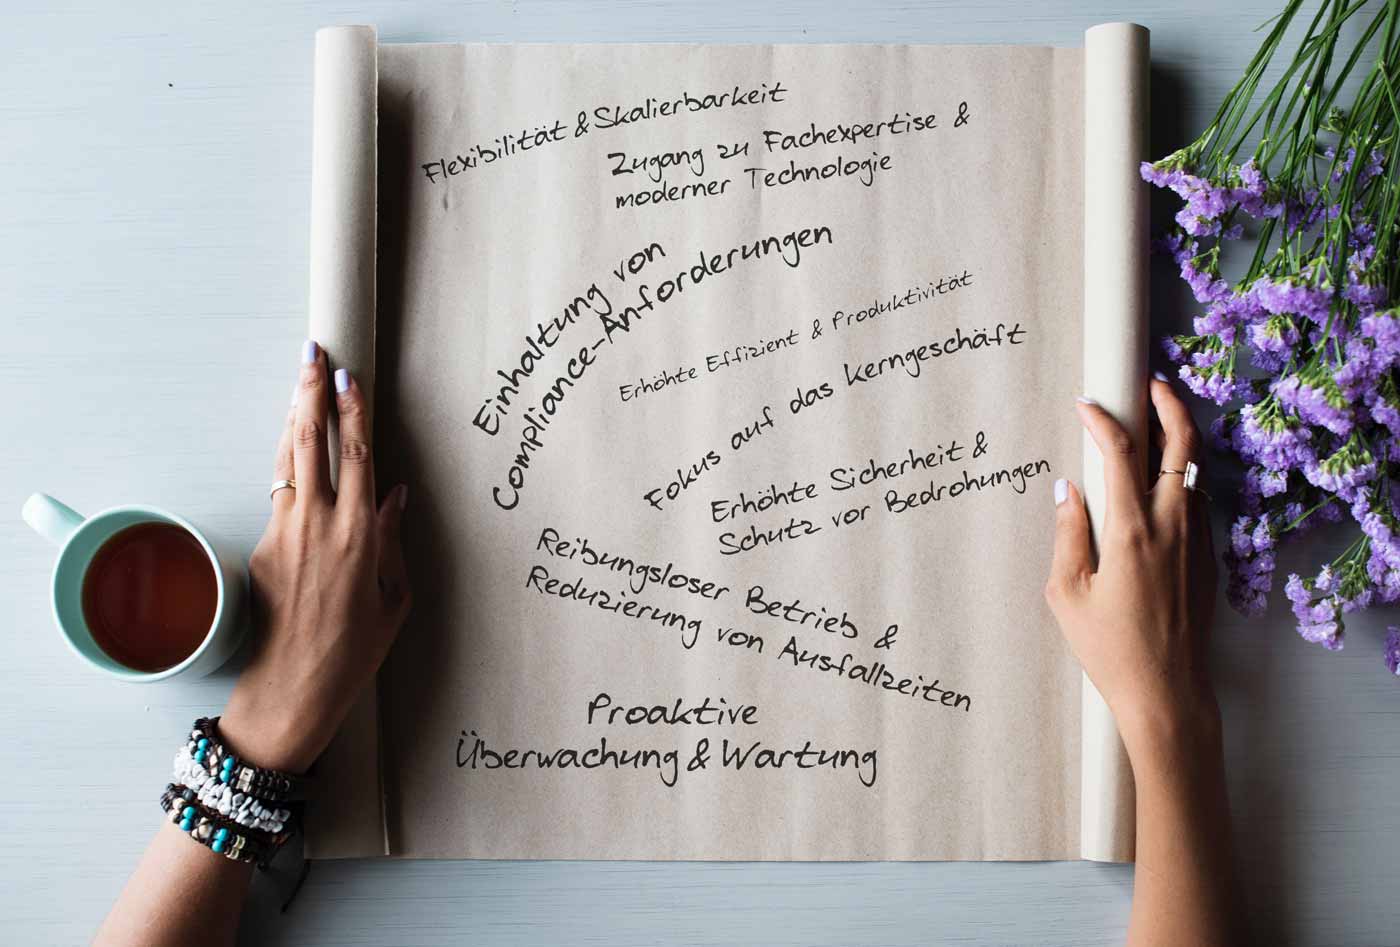 Flexibilität & Skalierbarkeit
Zugang zu Fachexpertise &
moderner Technologie
Einhaltung von
Compliance-Anforderungen
Erhöhte Effizient & Produktivität
Fokus auf das Kerngeschäft
Erhöhte Sicherheit &
Schutz vor Bedrohungen
Reibungsloser Betrieb &
Reduzierung von Ausfallzeiten
Proaktive
Überwachung & Wartung